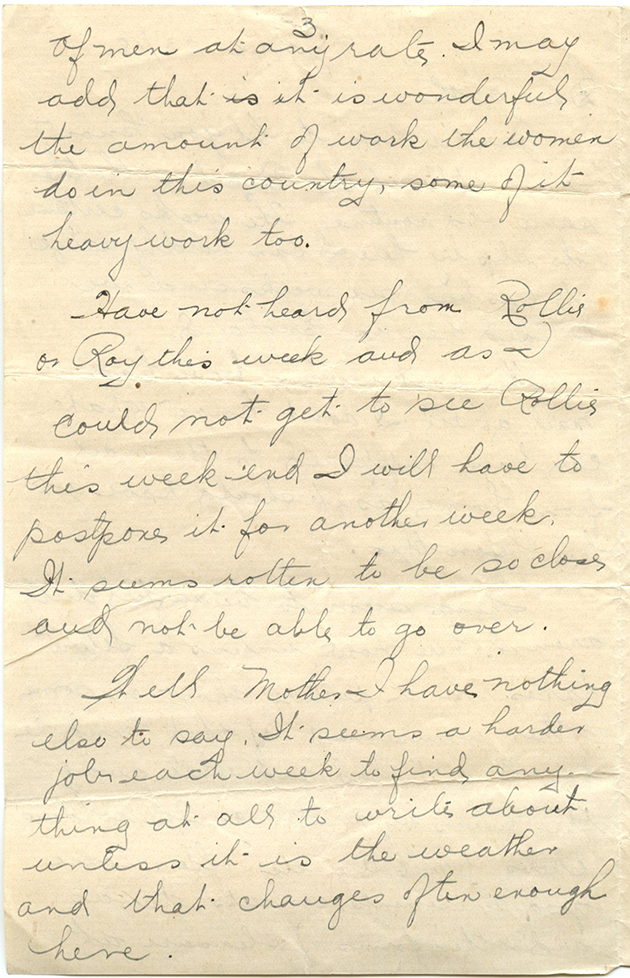 3
of men at any rate. I may
add that is it is wonderful
the amount of work the women
do in this country, some of it
heavy work too.
Have not heard from Rollie
or Roy this week and as I
could not get to see Rollie
this week end I will have to
postpone it for another week.
It seems rotten to be so close
and not be able to go over.
Well Mother I have nothing
else to say. It seems a harder
job each week to find any-
thing at all to write about
unless it is the weather
and that changes often enough
here.